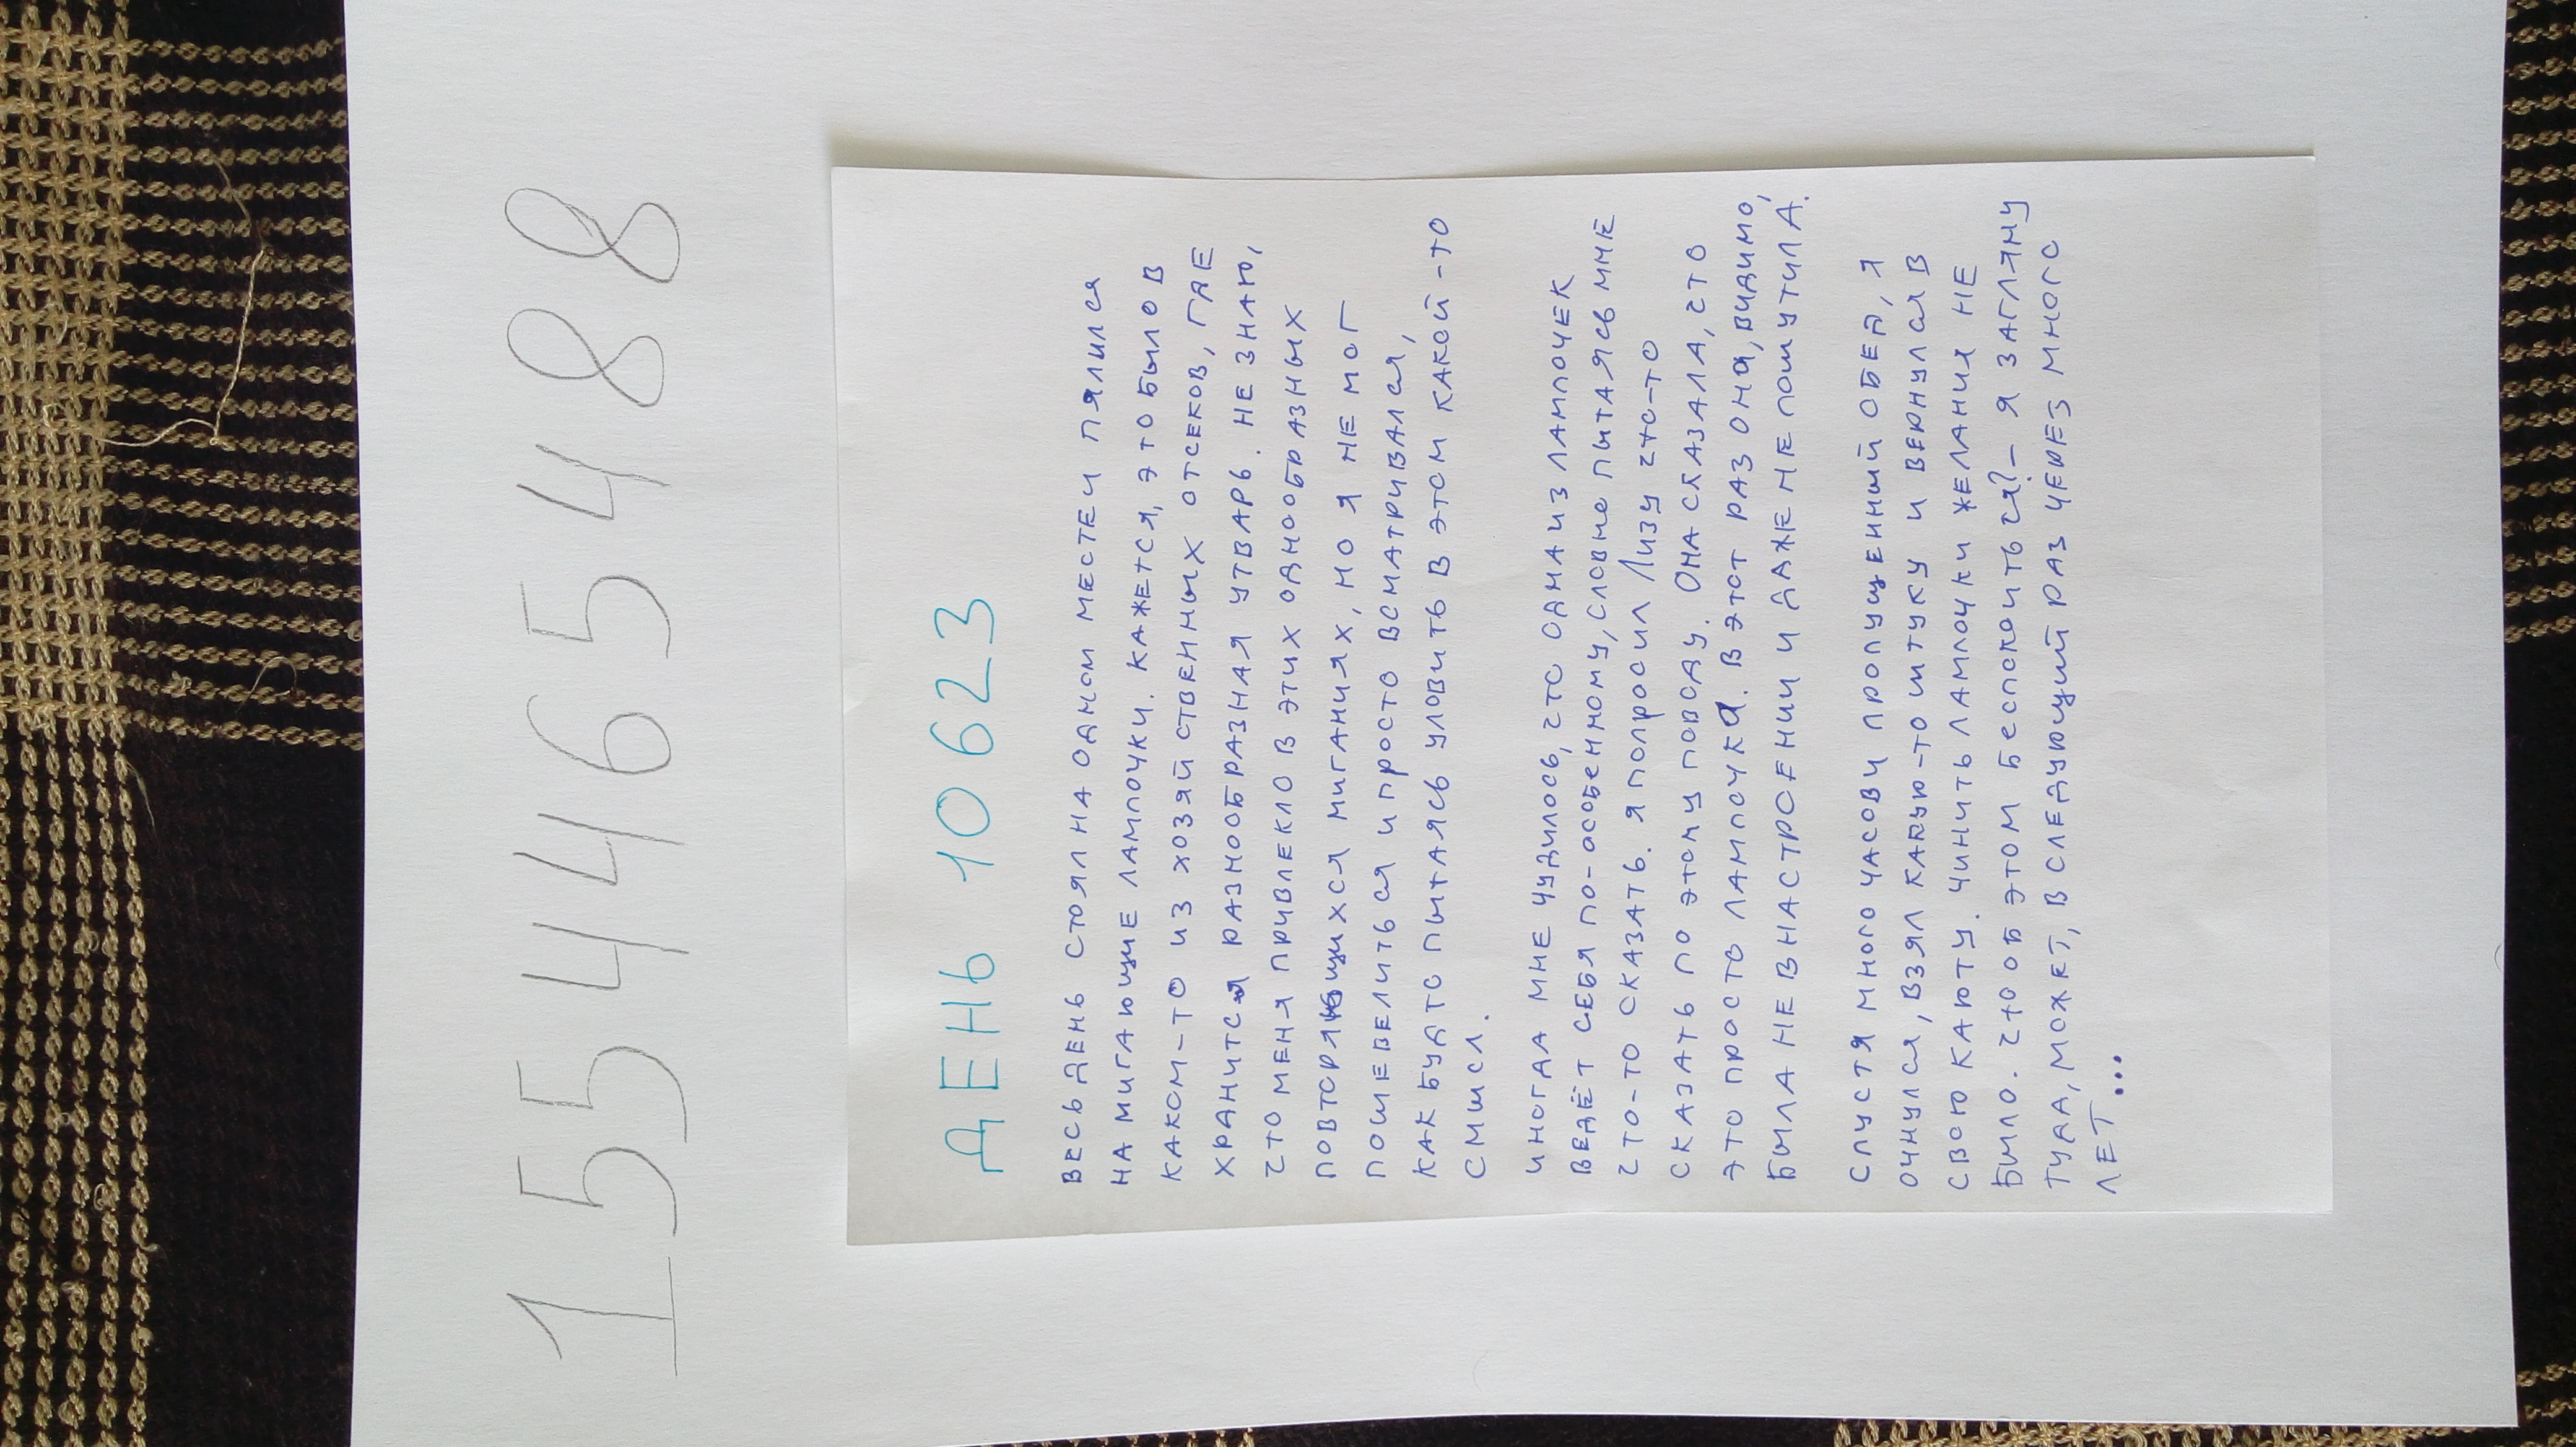 1554465488
ДЕНЬ 10623
ВЕСЬ ДЕНЬ СТОЯЛ НА ОДНОМ МЕСТЕ И ПЯЛИЛСЯ
НА МИГАЮЩИЕ ЛАМПОЧКИ. КАЖЕТСЯ, ЭТО БЫЛО В
КАКОМ-ТО ИЗ ХОЗЯЙСТВЕННЫХ ОТСЕКОВ, ГДЕ
ХРАНИТСЯ РАЗНООБРАЗНАЯ УТВАРЬ. НЕ ЗНАЮ,
ЧТО МЕНЯ ПРИВЛЕКЛО В ЭТИХ ОДНООБРАЗНЫХ
ПОВТОРЯЮЩИХСЯ МИГАНИЯХ, НО Я НЕ МОГ
ПОШЕВЕЛИТЬСЯ И ПРОСТО ВСМАТРИВАЛСЯ,
КАК БУДТО ПЫТАЯСЬ УЛОВИТЬ В ЭТОМ КАКОЙ-ТО
СМЫСЛ.
ИНОГДА МНЕ ЧУДИЛОСЬ, ЧТО ОДНА ИЗ ЛАМПОЧЕК
ВЕДЁТ СЕБЯ ПО-ОСОБЕННОМУ, СЛОВНО ПЫТАЯСЬ МНЕ
ЧТО-ТО СКАЗАТЬ. Я ПОПРОСИЛ ЛИЗУ ЧТО-ТО
СКАЗАТЬ ПО ЭТОМУ ПОВОДУ. ОНА СКАЗАЛА, ЧТО
ЭТО ПРОСТО ЛАМПОЧКА. В ЭТОТ РАЗ ОНА, ВИДИМО,
БЫЛА НЕ В НАСТРОЕНИИ И ДАЖЕ НЕ ПОШУТИЛА.
СПУСТЯ МНОГО ЧАСОВ И ПРОПУЩЕННЫЙ ОБЕД, Я
ОЧНУЛСЯ, ВЗЯЛ КАКУЮ-ТО ШТУКУ И ВЕРНУЛСЯ В
СВОЮ КАЮТУ. ЧИНИТЬ ЛАМПОЧКИ ЖЕЛАНИЯ НЕ
БЫЛО. ЧТО ОБ ЭТОМ БЕСПОКОИТЬСЯ? – Я ЗАГЛЯНУ
ТУДА, МОЖЕТ, В СЛЕДУЮЩИЙ РАЗ ЧЕРЕЗ МНОГО
ЛЕТ...